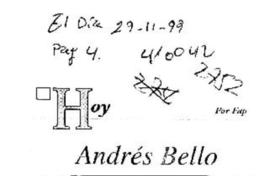 El Día 29-11-99
Pag 4. 410042
2752
Hoy
Por Fap
Andrés Bello